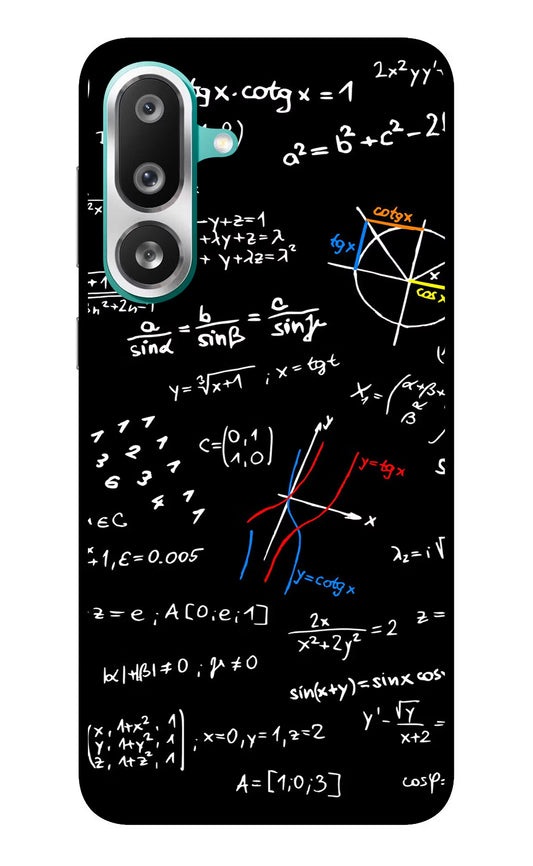 2x²yy'
tgx·cotgx=1
a²=b²+c²-2
-y+z=1
+λy+z=λ
+ y+λz=λ²
cotgx
tgx
x
cosx
a/sinα = b/sinβ = c/sinγ
y=∛x+1 ; x=tgt
X₁=(α+β+
β
1 1 1
3 2 1
6 3 1
4 1
1
C=(0,1
1,0)
y
y=tgx
x
y=cotgx
∈C
+1, ε=0.005
λ₂=i√
z=e ; A[0;e;1]
2x/x²+2y²=2
z=
|α|+|β|≠0 ; γ≠0
sin(x+y)=sinx cos
x, 1+x², 1
y, 1+y², 1
z, 1+z², 1
; x=0, y=1, z=2
y'-√y/x+2=
A=[1;0;3]
cosφ=